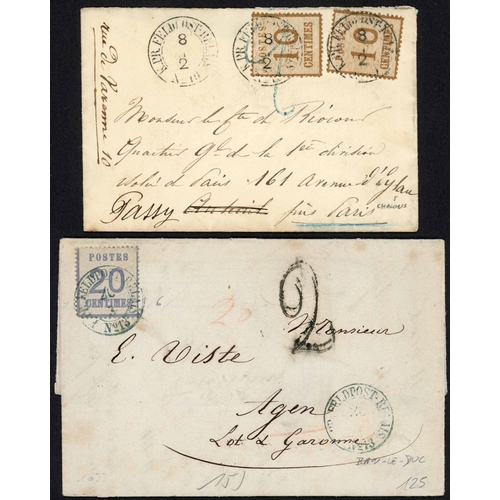 K.PR. FELDPOST-RELAIS
8
2
No 19
K.PR. FELDPOST-RELAIS
8
2
POSTES
10
CENTIMES
10
CENTIMES
8
2
rue de Varenne 10
Monsieur le Cte de
Quartier Gl de la 1re division
de Paris 161 Avenue d'Eylau
Passy Auteuil près Paris
CHALONS
POSTES
20
CENTIMES
FELDPOST-RELAIS
No 13
20
2
Monsieur
E. Viste
Agen
Lot & Garonne
K.PR. FELDPOST-RELAIS
No 13
BAR-LE-DUC
15)
125